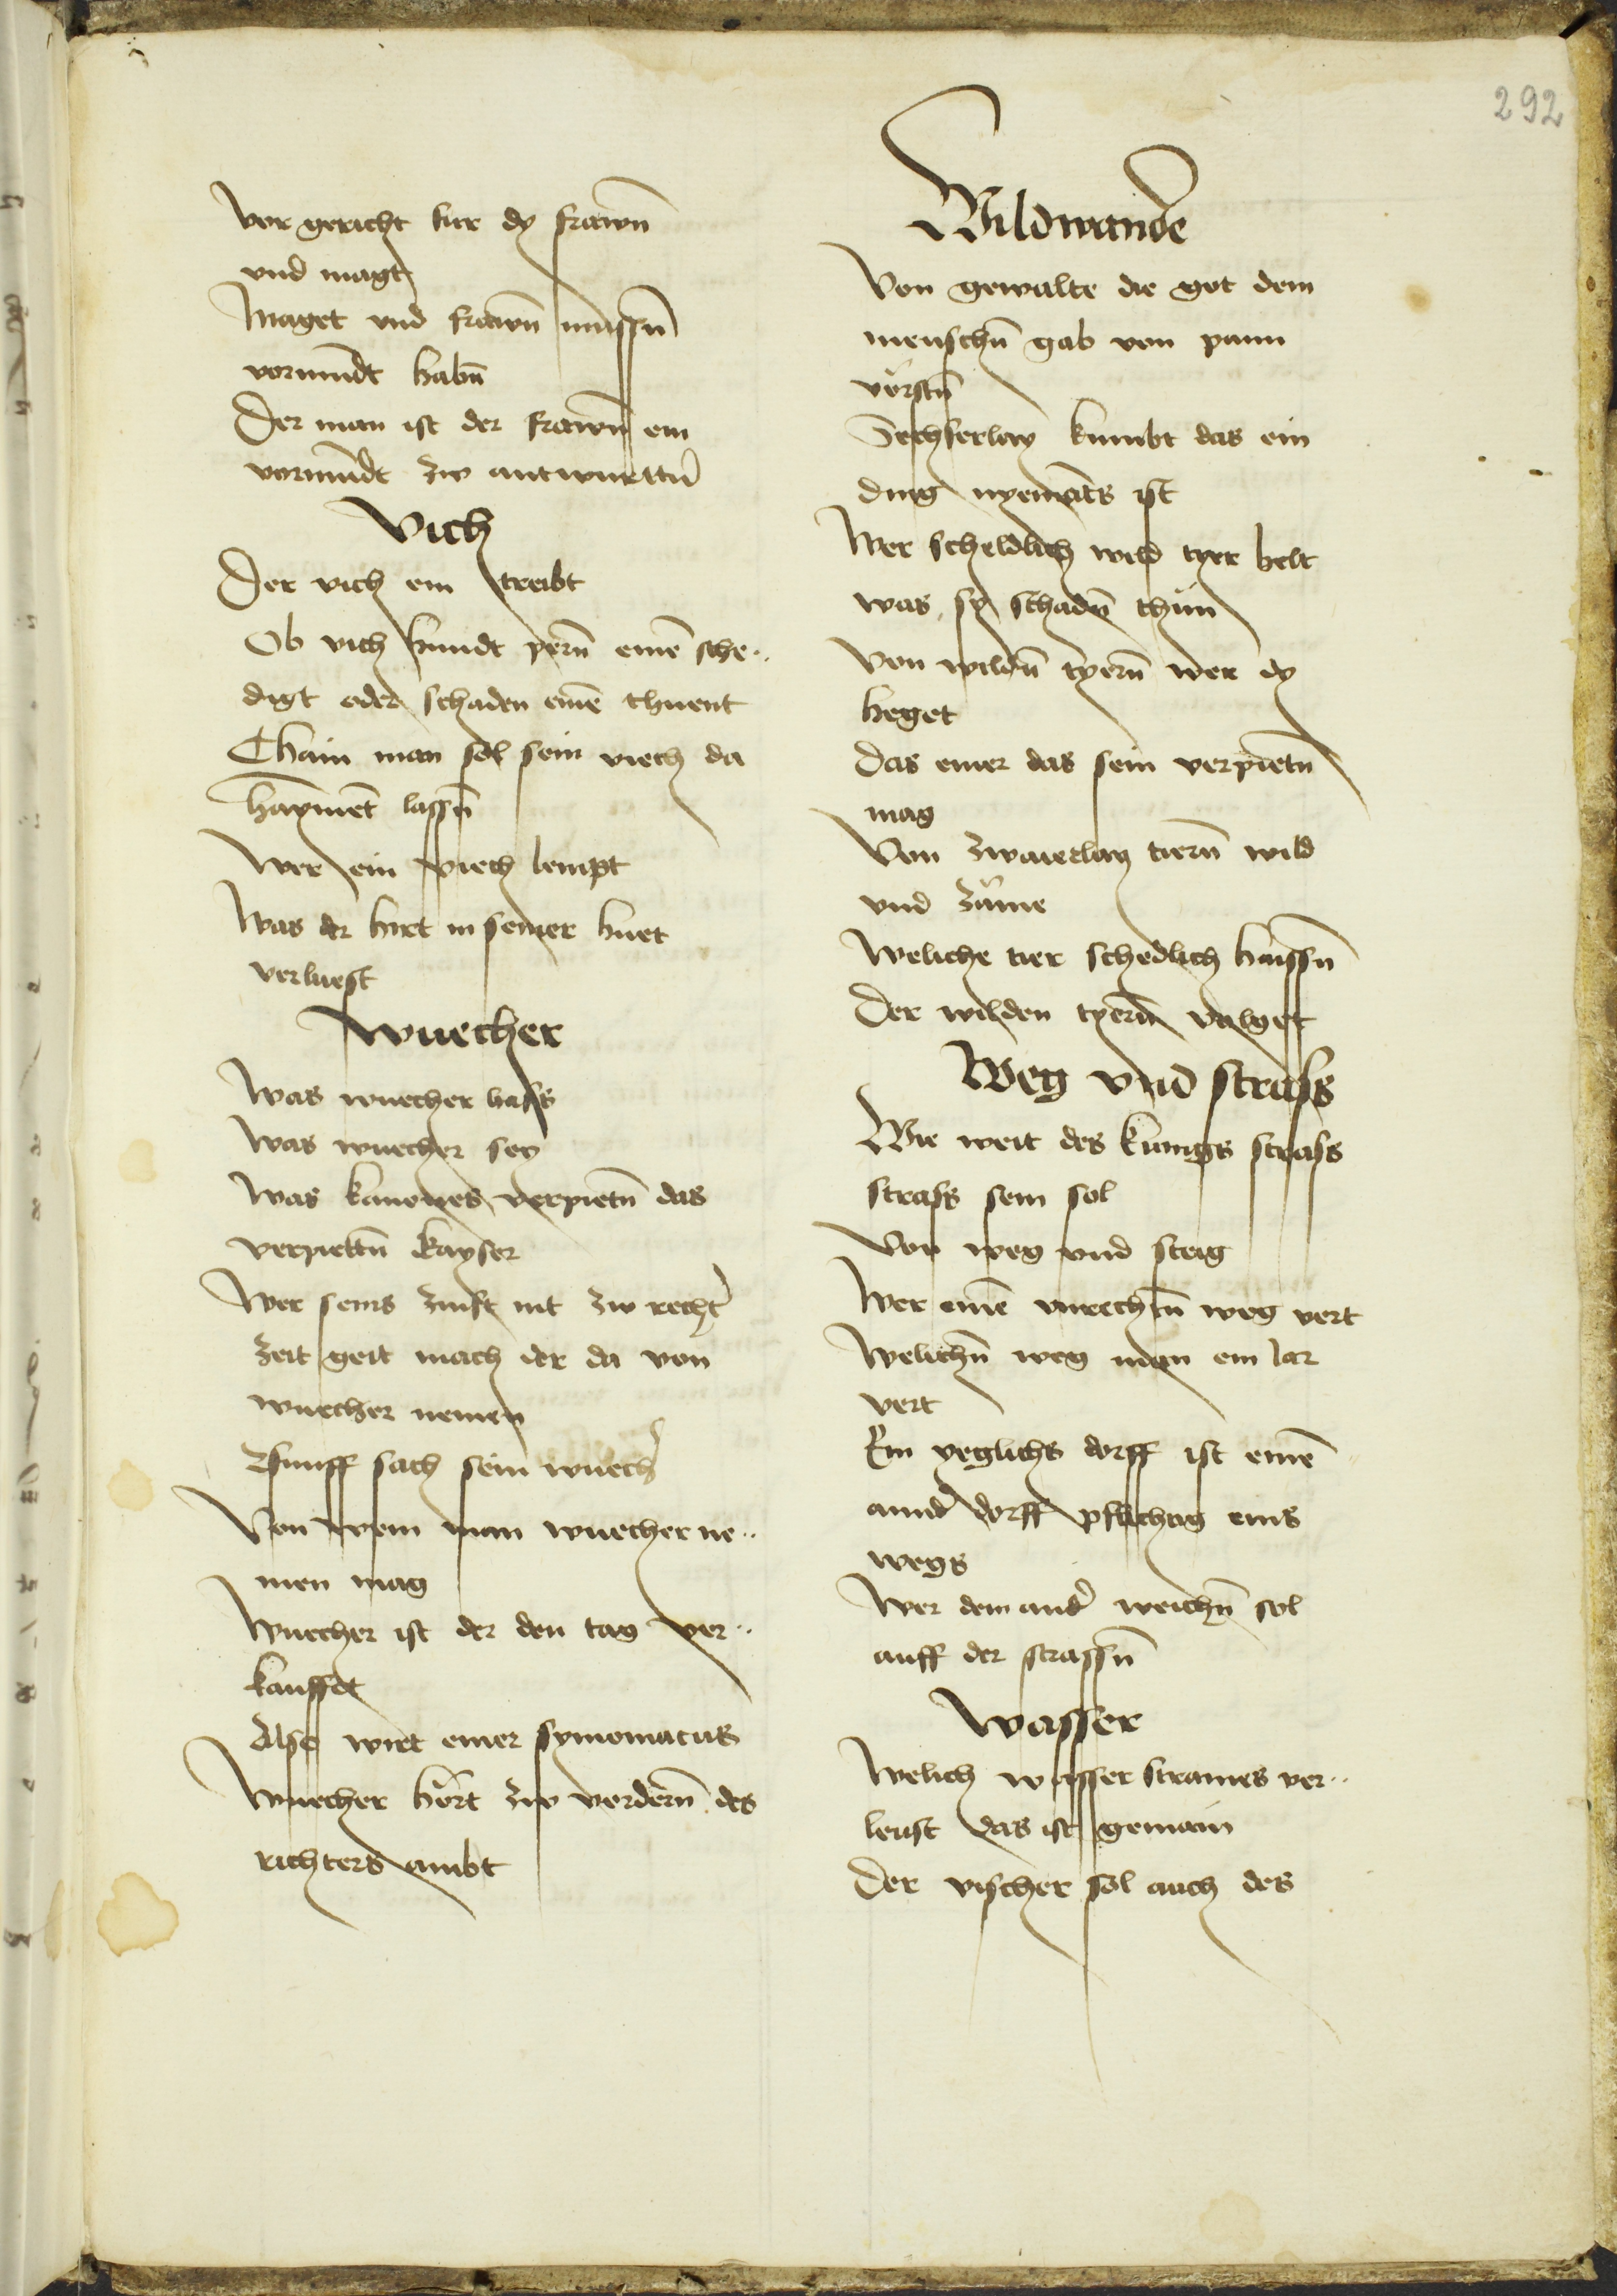 292
vor gericht fur dy frawn̄
vnd magt
Maget vnd frawn̄ mussn̄
vormūdt habn̄
Der man ist der frawn̄ ein
vormūdt zw antwurttn̄
Vich
Der vich ein treibt
Ob vich hundt pern̄ einē sche¨
digt oder schaden einē thuent
Chain man sol sein viech da
haymēt lassn̄
Wer ein viech lempt
Was der hirt in seiner huet
verluest
Wuecher
Was wuecher haiss
Was wuecher sey
Was kanones verpietn̄ das
verpiettn̄ kayser
Wer seins zinss nit zw recht̄
zeit geit mach der da von
wuecher nemen
Funff sach sein wuech̄
Von wem man wuecher ne¨
men mag
Wuecher ist der den tag ver¨
kauffet
Also wirt einer symoniacus
Wuecher hört zw vordern̄ des
richters ambt
Wildwande
Von gewalte die got dem
menschn̄ gab von pann
vörstn̄
Sechserlay kumbt das ein
ding nyemāts ist
Wer schedlich wild tyer helt
was sy schadn̄ thun
Von wildn̄ tyern̄ wer dy
heget
Das einer das sein verpietn̄
mag
Von zwaierlay tiern̄ wild
vnd zäme
Weliche tier schedlich haissn̄
Der wilden tyern̄ volget
Weg vnd strass
Wie weit des kunigs strass
strass sein sol
Von weg vnd steig
Wer einē vnrechtn̄ weg vert
Welichn̄ weg man ein Jar
vert
Ein yeglichs dorff ist einē
annd̄ dorff pflichtig eins
wegs
Wer dem and̄ weichn̄ sol
auff der strassn̄
Wasser
Welich wasser strames ver¨
leust das ist gemain
Der vischer sol auch des